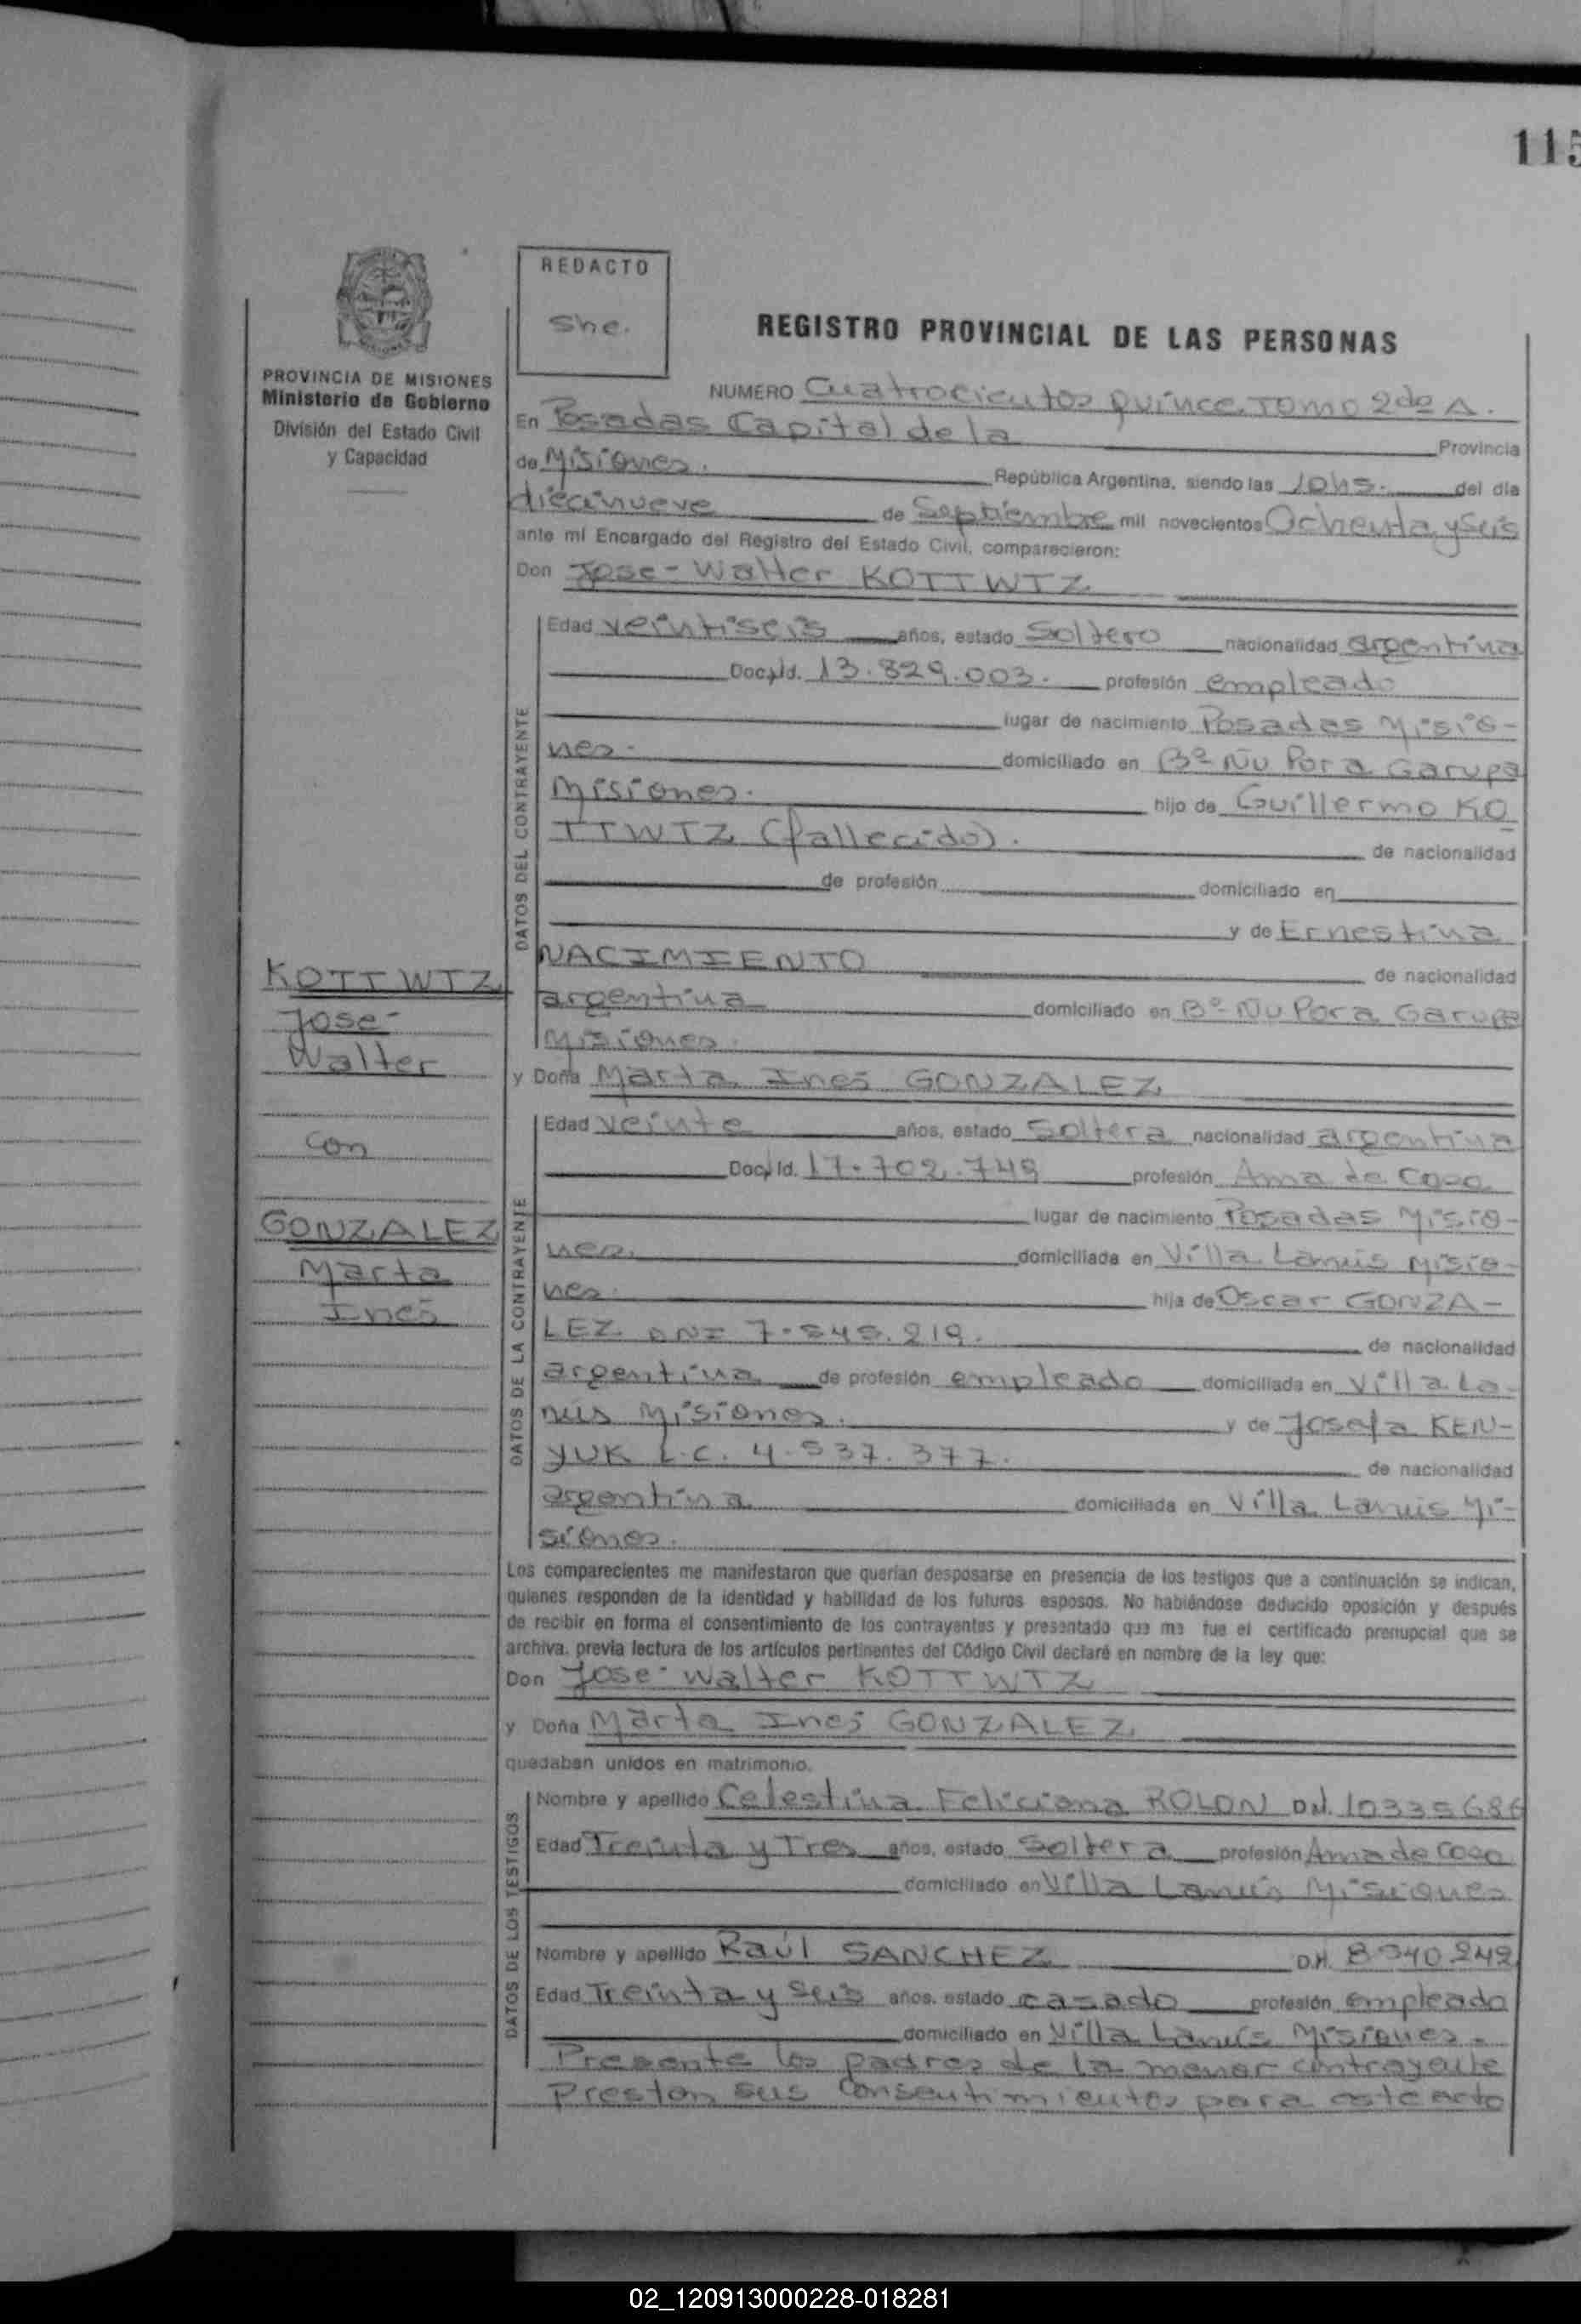 115
REDACTO
She.
REGISTRO PROVINCIAL DE LAS PERSONAS
PROVINCIA DE MISIONES
Ministerio de Gobierno
División del Estado Civil
y Capacidad
NUMERO Cuatrocientos Quince. Tomo 2do A.
En Posadas Capital de la Provincia
de Misiones. República Argentina, siendo las 10hs. del día
diecinueve de Septiembre mil novecientos Ochenta y Seis
ante mí Encargado del Registro del Estado Civil, comparecieron:
Don Jose Walter KOTTWTZ
DATOS DEL CONTRAYENTE
Edad veintiseis años, estado Soltero nacionalidad argentina
Doc. Id. 13.829.003. profesión empleado
lugar de nacimiento Posadas Misio-
nes. domiciliado en Bº Ñu Pora Garupa
Misiones. hijo de Guillermo KO
TTWTZ (fallecido). de nacionalidad
de profesión domiciliado en
y de Ernestina
NACIMIENTO de nacionalidad
argentina domiciliado en Bº Ñu Pora Garupa
Misiones.
y Doña Marta Ines GONZALEZ
KOTTWTZ
Jose
Walter
con
GONZALEZ
Marta
Ines
DATOS DE LA CONTRAYENTE
Edad veinte años, estado Soltera nacionalidad argentina
Doc. Id. 17.702.749 profesión Ama de Casa
lugar de nacimiento Posadas Misio-
nes. domiciliada en Villa Lanus Misio-
nes. hija de Oscar GONZA-
LEZ DNI 7.545.219. de nacionalidad
argentina de profesión empleado domiciliada en Villa La-
nus Misiones. y de Josefa KEN-
YUK L.C. 4.537.377. de nacionalidad
argentina domiciliada en Villa Lanus Mi-
siones.
Los comparecientes me manifestaron que querían desposarse en presencia de los testigos que a continuación se indican,
quienes responden de la identidad y habilidad de los futuros esposos. No habiéndose deducido oposición y después
de recibir en forma el consentimiento de los contrayentes y presentado que me fue el certificado prenupcial que se
archiva, previa lectura de los artículos pertinentes del Código Civil declaré en nombre de la ley que:
Don Jose Walter KOTTWTZ
y Doña Marta Ines GONZALEZ
quedaban unidos en matrimonio.
DATOS DE LOS TESTIGOS
Nombre y apellido Celestina Feliciana ROLON D.N. 10335686
Edad Treinta y Tres años, estado Soltera profesión Ama de Casa
domiciliado en Villa Lanús Misiones
Nombre y apellido Raúl SANCHEZ D.N. 8540242
Edad Treinta y Seis años, estado casado profesión empleado
domiciliado en Villa Lanús Misiones.
Presente los padres de la menor contrayente
Prestan sus consentimientos para este acto
02_120913000228-018281